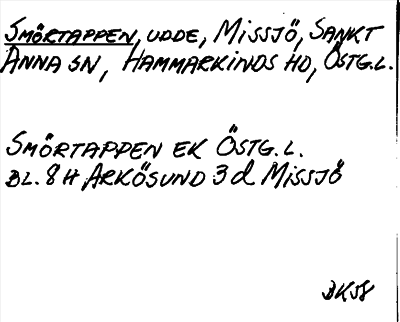 SMÖRTAPPEN, UDDE, MISSJÖ, SANKT
ANNA SN, HAMMARKINDS HD, ÖSTG.L.
SMÖRTAPPEN EK ÖSTG.L.
BL. 8 H ARKÖSUND 3 d MISSJÖ
BK58